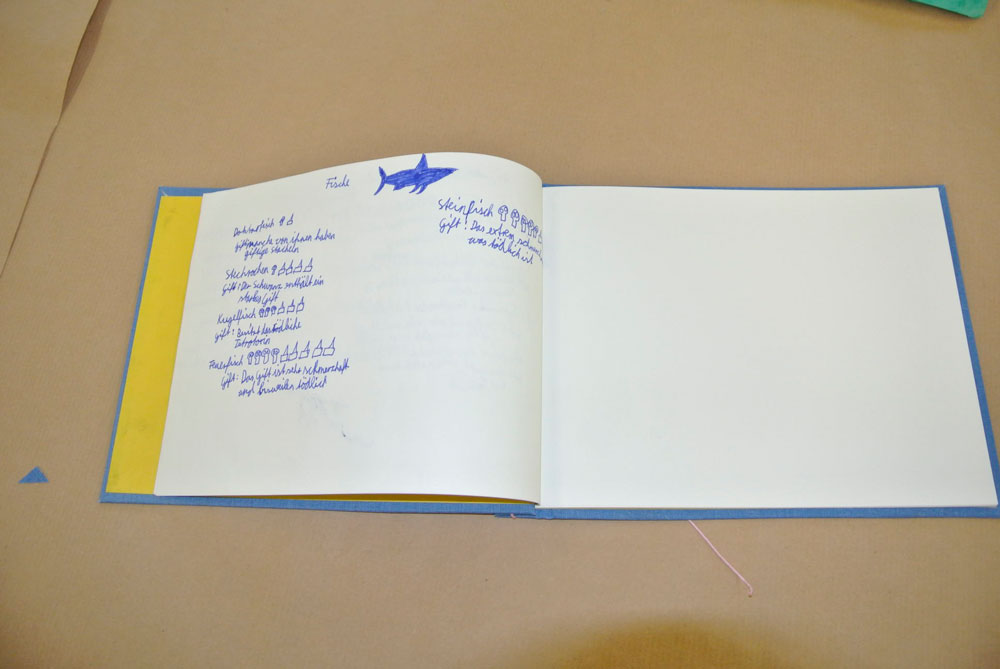 Fische
Doktorfisch
gift: manche von ihnen haben
giftige Stacheln
Stechrochen
Gift: Der Schwanz enthält ein
starkes Gift
Kugelfisch
gift: Besitzt das tödliche
Feuerfisch
Gift: Das Gift ist sehr schmerzhaft
und bisweilen tödlich
Steinfisch
Gift! Das extrem
was tödlich ist